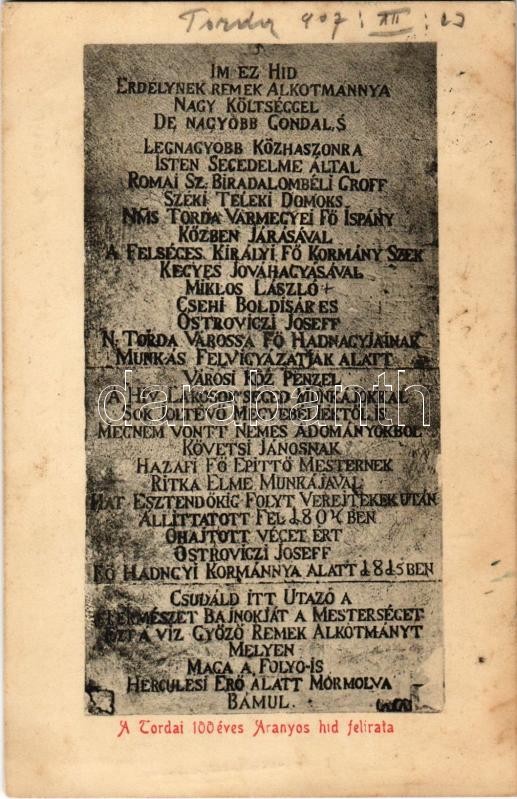 Torda 907 : XII : 23
IM EZ HID
ERDÉLYNEK REMEK ALKOTMÁNNYA
NAGY KÖLTSÉGGEL
DE NAGYOBB GONDAL,S
LEGNAGYOBB KÖZHASZONRA
ISTEN SEGEDELME ÁLTAL
ROMAI SZ: BIRADALOMBÉLI GROFF
SZÉKI TELEKI DOMOKS
NMS TORDA VARMEGYEI FÖ ISPÁNY
KÖZBEN JÁRÁSÁVAL
A FELSÉGES KIRÁLYI FÖ KORMÁNY SZEK
KEGYES JOVÁHAGYÁSÁVAL
MIKLOS LÁSZLÓ
CSEHI BOLDISÁR ES
OSTROVICZI JOSEFF
N: TORDA VÁROSSA FÖ HADNAGYJAINAK
MUNKÁS FELVIGYÁZATJAK ALATT
VÁROSI KÖZ PENZEL
A HIV LAKOSOK SEGED MUNKÁJOKKAL
SOK JOLTÉVÖ MEGYEBÉLIEKTÖL IS
MEGNEM VONTT NEMES ADOMÁNYOKBOL
KÖVETSI JÁNOSNAK
HAZAFI FÖ ÉPITTÖ MESTERNEK
RITKA ELME MUNKÁJAVAL
HAT ESZTENDÖKIG FOLYT VEREJTEKEK UTÁN
ÁLLITTATOTT FEL 1804 BEN
OHAJTOTT VÉGET ÉRT
OSTROVICZI JOSEFF
FÖ HADNGYI KORMÁNNYA ALATT 1815 BEN
CSUDÁLD ITT UTAZÓ A
TERMÉSZET BAJNOKJÁT A MESTERSÉGET
EZT A VÍZ GYÖZÖ REMEK ALKOTMÁNYT
MELYEN
MAGA A FOLYO-IS
HERCULESI ERÖ ALATT MORMOLVA
BÁMUL.
darabanth
A Tordai 100 éves Aranyos hid felirata